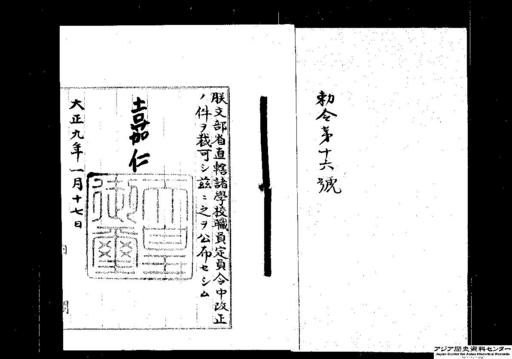 勅令第十六號
朕文部省直轄諸學校職員定員令中改正
ノ件ヲ裁可シ茲ニ之ヲ公布セシム
嘉仁
天皇御璽
大正九年一月十七日
アジア歴史資料センター
Japan Center for Asian Historical Records